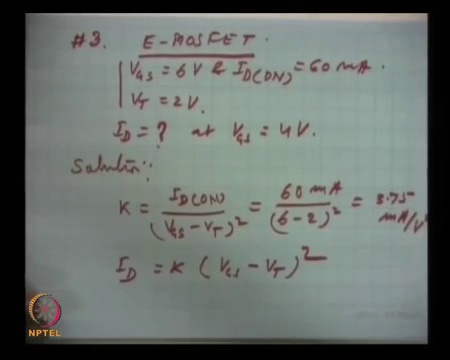 #3. E-MOSFET
V_GS = 6V & I_D(ON) = 60 mA.
V_T = 2V.
I_D = ? at V_GS = 4V.
Solution:
K = I_D(ON) / (V_GS - V_T)^2 = 60 mA / (6-2)^2 = 3.75 mA/V
I_D = K (V_GS - V_T)^2
NPTEL